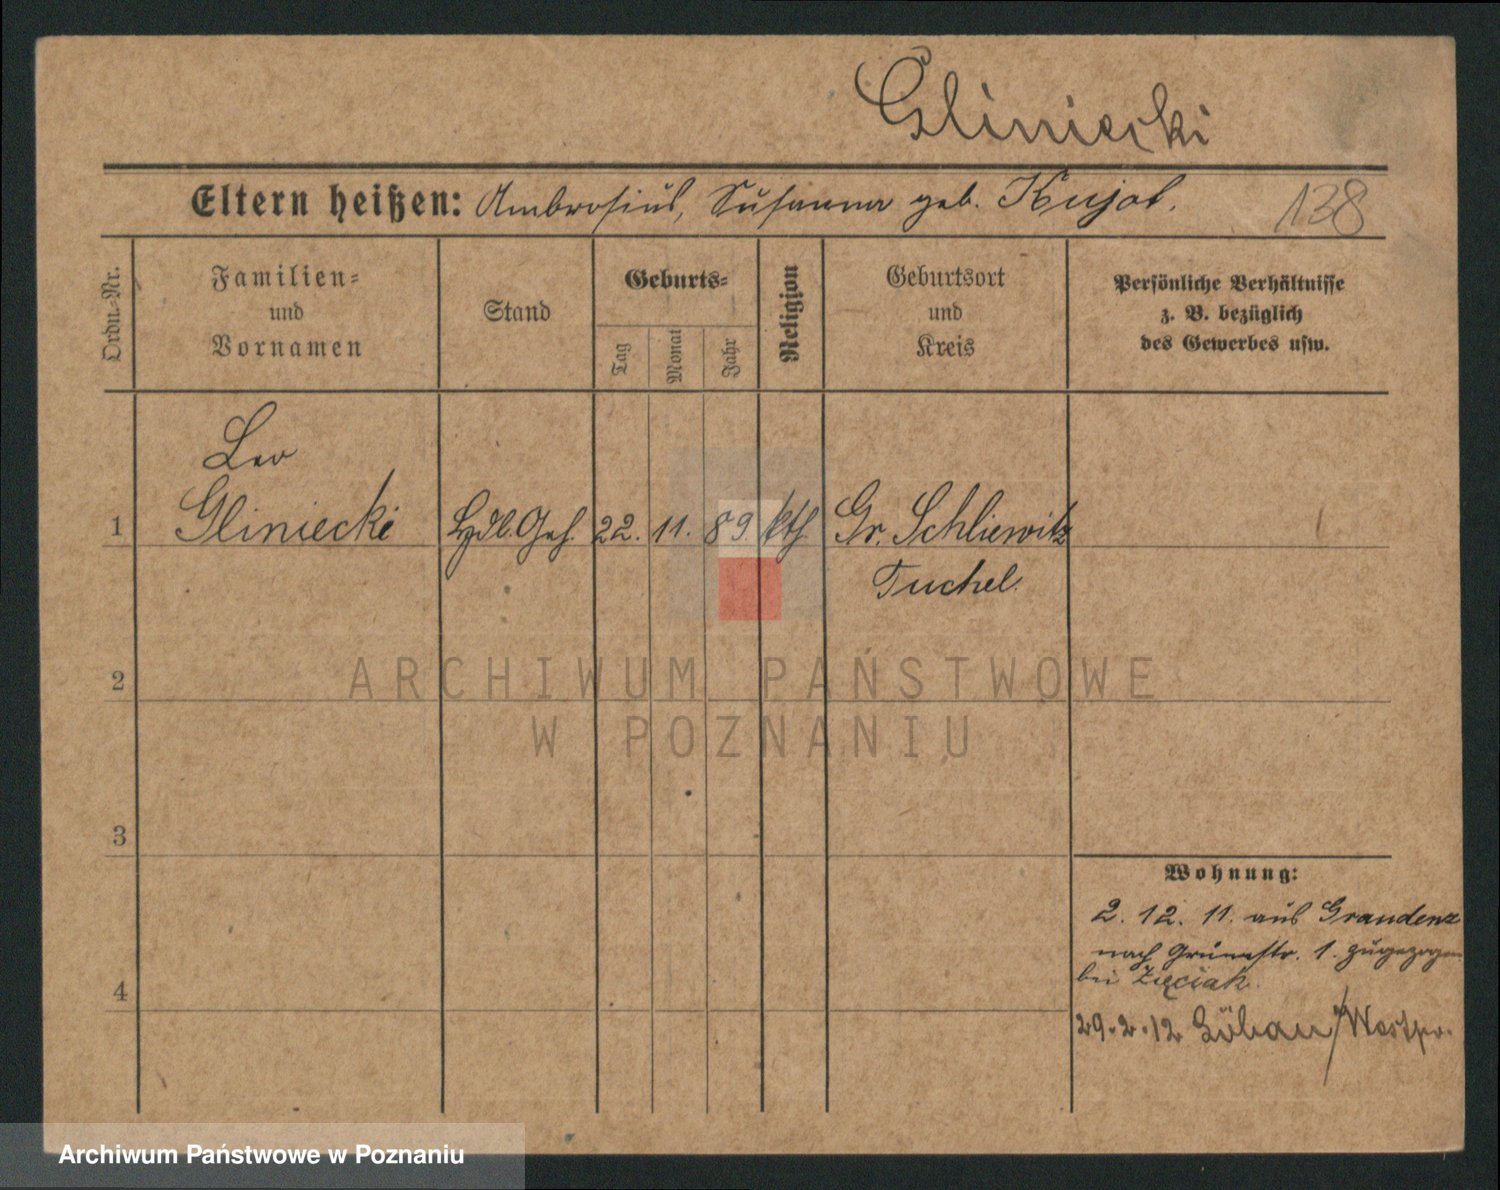 Gliniecki
Eltern heißen: Ambrosius, Susanna geb. Kujot.
138
Ordn.-Nr.
Familien-
und
Vornamen
Stand
Geburts-
Tag
Monat
Jahr
Religion
Geburtsort
und
Kreis
Persönliche Verhältnisse
z. B. bezüglich
des Gewerbes usw.
Leo
1 Gliniecki Hdl. Geh. 22. 11. 89. kth. Gr. Schliewitz
Tuchel.
ARCHIWUM PAŃSTWOWE
W POZNANIU
2
3
4
Wohnung:
2. 12. 11. aus Graudenz
nach Grünestr. 1. zugezogen
bei Zięciak.
29.2.12 Löbau/Westpr.
Archiwum Państwowe w Poznaniu